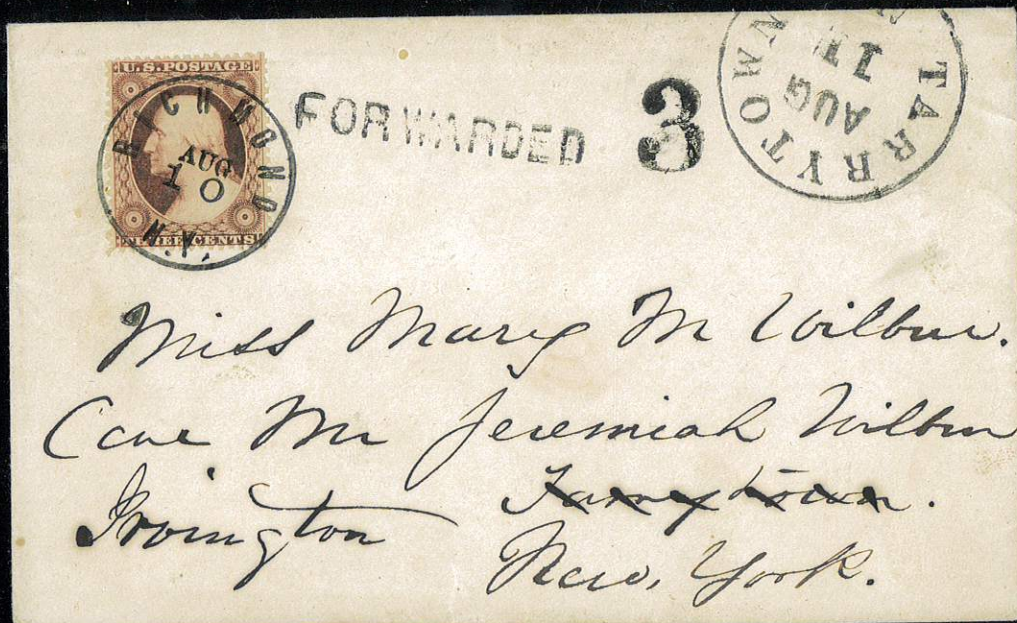 U.S. POSTAGE
RICHMOND
AUG
10
THREE CENTS
FORWARDED
3
TARRYTOWN
AUG
11
Miss Mary M Wilbur.
Care Mr Jeremiah Wilbur
Irvington Tarrytown.
New, York.